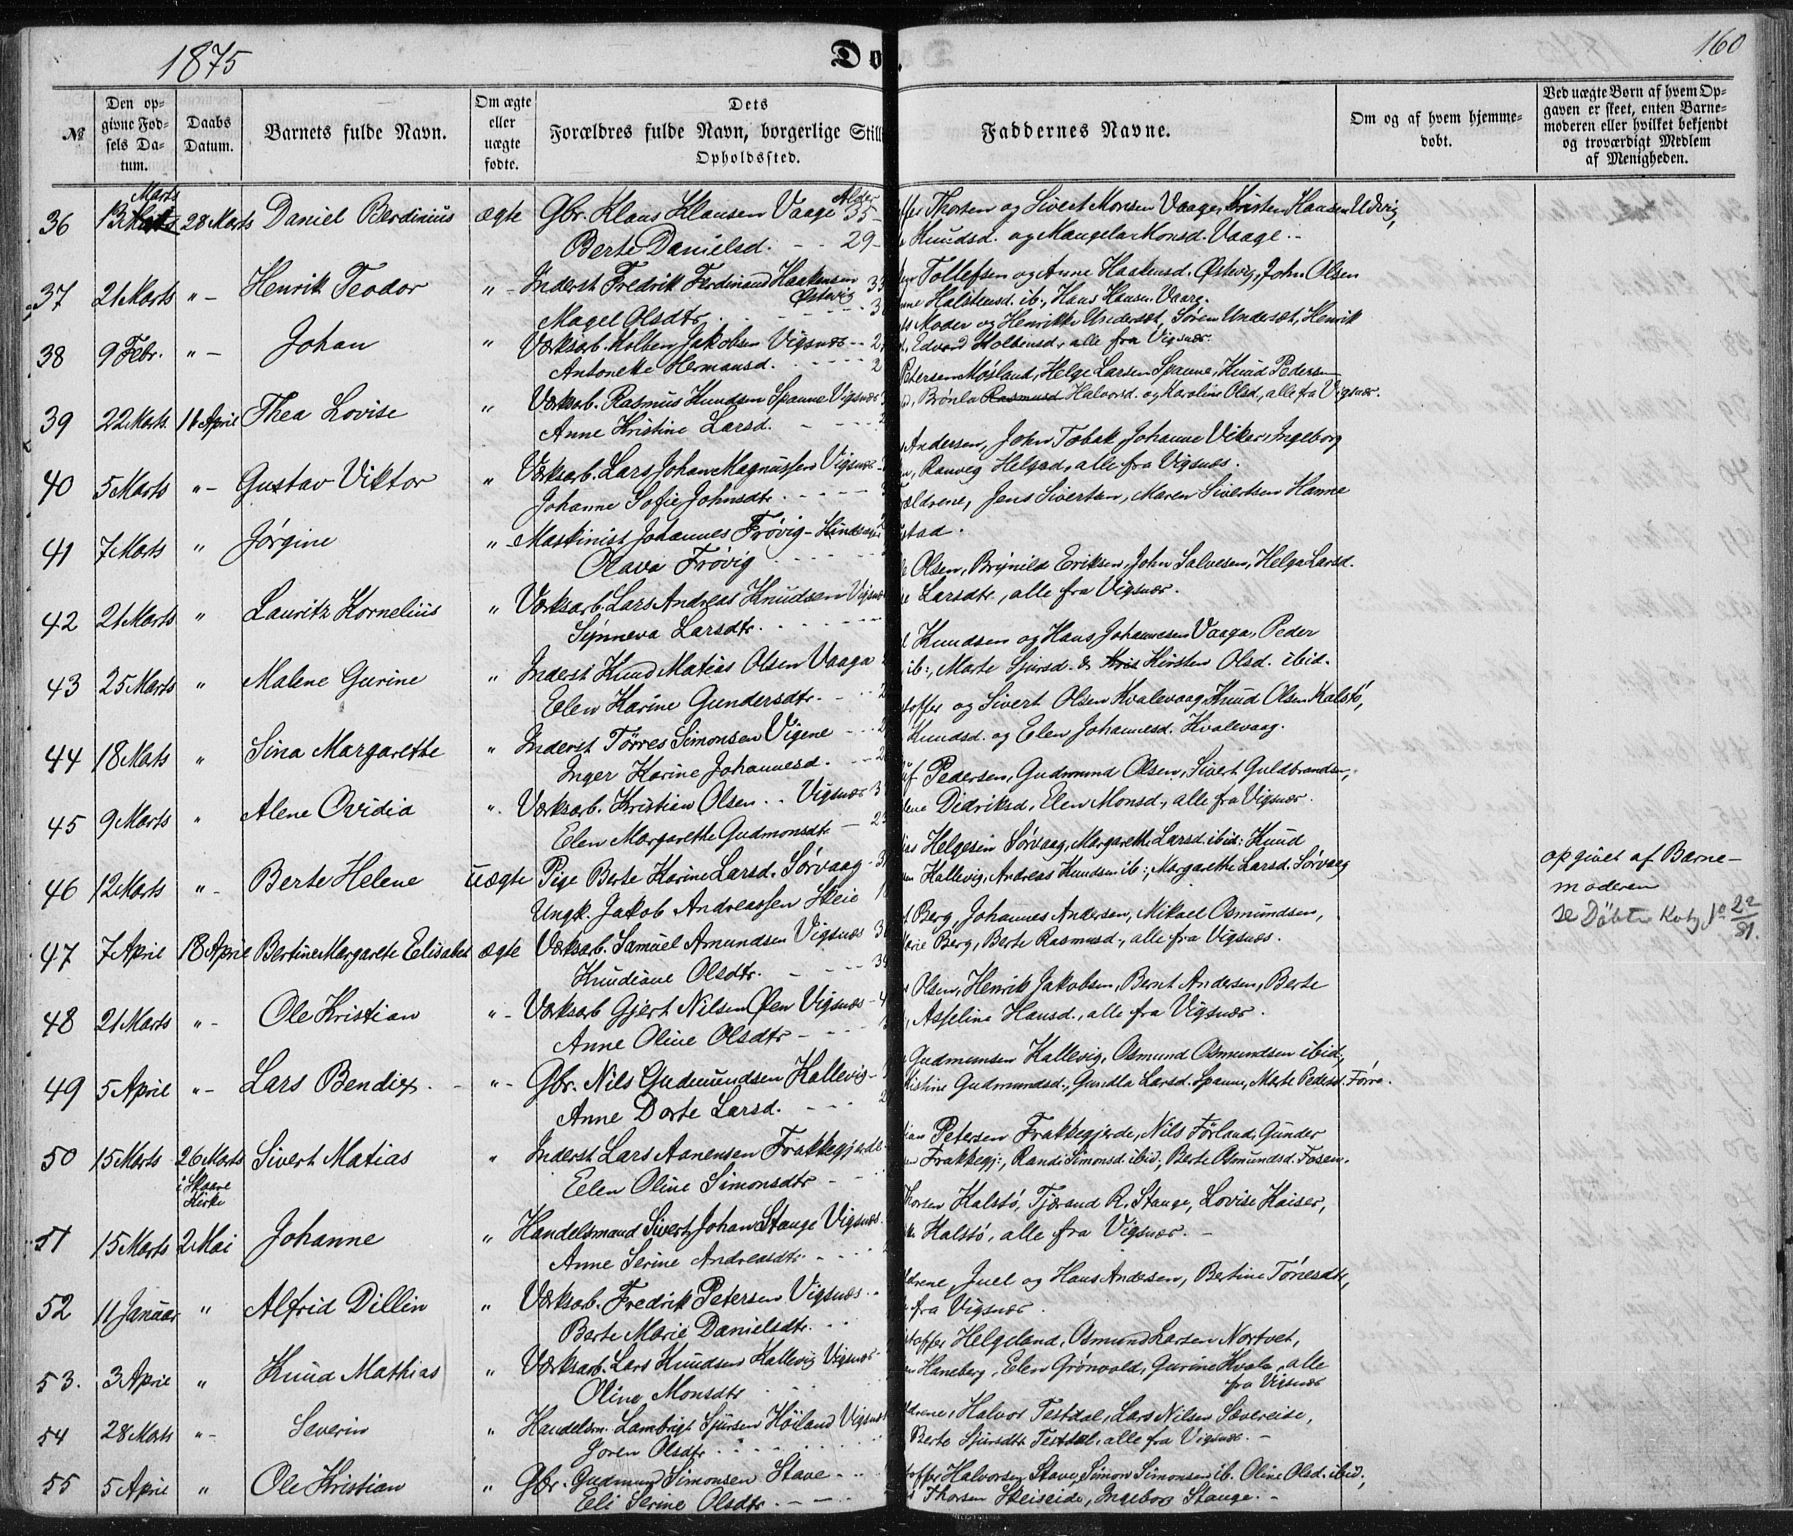 1875
Do
160
№
Den op-
givne Fød-
sels Da-
tum.
Daabs
Datum.
Barnets fulde Navn.
Om ægte
eller
uægte
fødte.
Dets
Forældres fulde Navn, borgerlige Still
Opholdssted.
Faddernes Navne.
Om og af hvem hjemme-
døbt.
Ved uægte Børn af hvem Op-
gaven er skeet, enten Barne-
moderen eller hvilket bekjendt
og troværdigt Medlem
af Menigheden.
36 13 Marts 28 Marts Daniel Berdinius ægte Gbr. Klaus Klausen Vaage Alder 35
Berte Danielsd. 29
Thorsen og Sivert Monsen Vaage, Kristen Hansen Udvig,
Knudsd. og Mangela Monsd. Vaage.
37 21 Marts " Henrik Teodor " Inderst Fredrik Ferdinand Haakensen
Østevig
Magel Olsdtr.
Tollefsen og Anne Haakensd. Østvig, John Olsen
Halstensd. ib., Hans Hansen Vaare.
38 9 Febr. " Johan " Værksarb. Kolben Jakobsen Vigsnæs
Antonette Hermansd.
Moder og Henrikke Underset, Søren Undersæt, Henrik
Edvard Kolbensd., alle fra Vigsnæs.
39 22 Marts. 11 April Thea Lovise " Værksab. Rasmus Knudsen Spanne Vigsnæs
Anne Kristine Larsd.
Petersen Møsland, Helge Larsen Spanne, Knud Pedersen
Brønla Rasmusd Halvorsd. og Karoline Olsd., alle fra Vigsnæs.
40 5 Marts " Gustav Viktor " Værksarb. Lars Johan Magnussen Vigsnæs
Johanne Sofie Johnsdtr.
Andersen, John Tobak, Johanne Vikar, Ingeborg
Ranveg Helgesd., alle fra Vigsnæs.
41 7 Marts " Jørgine " Maskinist Johannes Frøvig
Olava Frøvig
ældrene, Jens Sivertsen, Maren Sivertsen Hanne
stad.
42 21 Marts " Lauritz Kornelius " Værksarb. Lars Andreas Knudsen Vigsnæ
Synneva Larsdtr.
Olsen, Brynild Eriksen, John Salvesen, Helga Larsd.
Larsdtr, alle fra Vigsnæs.
43 25 Marts " Malene Gurine " Inderst Knud Matias Olsen Vaaga
Elen Karine Gundersdtr.
Knudsen og Hans Johannesen Vaaga, Peder
ib:, Marte Sjursd. & Kris Kirsten Olsd. ibid.
44 18 Mats " Sina Margarethe " Inderst Tørres Simonsen Vigene
Inger Karine Johannesd.
stoffer og Sivert Olsen Kvalevaag, Knud Olsen Kalstø,
Knudsd. og Elen Johannesd. Kvalevaag.
45 9 Marts " Alene Ovidia " Værksab. Kristian Olsen Vigsnæs
Elen Margarethe Gudmonsdtr
Pedersen, Gudmund Olsen, Sivert Guldbrandsen,
Didriksd, Elen Monsd., alle fra Vigsnæs.
46 12 Marts " Berte Helene uægte Pige Berte Karine Larsd. Sørvaag
Ungk. Jakob Andreassen Skeie
Helgesen Sørvaag, Margarethe Larsd. ibid: Knud
Kallevig, Andreas Knudsen ib:, Margarethe Larsd. Sørvaag
opgivet af Barne-
moderen
se Døbte 22
81.
47 7 April 18 April Bertine Margarete Elisabet ægte Værksarb. Samuel Amundsen Vigsnæs
Knudiane Olsdtr.
Berg, Johannes Andersen, Mikael Osmundsen,
Marie Berg, Berte Rasmusd., alle fra Vigsnæs.
48 21 Marts " Ole Kristian " Værksarb Gjert Nilsen Øen Vigsnæs
Anne Oline Olsdtr
Olsen, Henrik Jakobsen, Bernt Andersen, Berte
Asseline Hansd., alle fra Vigsnæs.
49 5 April " Lars Bendix. " Gbr. Nils Gudmundsen Kallevig
Anne Dorte Larsd.
Gudmunsen Kallevig, Osmund Osmundsen ibid,
Kristine Gudmundsd., Gundla Larsd. Spanne, Marte Pedersd. Førre.
50 15 Marts 26 Marts i Skaare Kirke Sivert Matias " Inderst Lars Aanensen Frakkegjerde
Elen Oline Simonsdtr
Petersen Frakkegjerde, Nils Førland, Gunder
Frakkegj:, Randi Simonsd ibid, Berte Osmundsd. Fosen.
51 15 Marts 2 Mai Johanne " Handelsmand Sivert Johan Stange Vigsnæs.
Anne Serine Andreasdtr
Thorsen Kalstø, Tjærand R. Stange, Lovise Kaiser,
Kalstø, alle fra Vigsnæs.
52 11 Januar " Alfrid Dillin " Værksab. Fredrik Petersen Vigsnæs
Berte Marie Danielsdtr.
drene, Juel og Hans Andersen, Bertine Tønesdtr,
fra Vigsnæs.
53. 3 April " Knud Mathias " Værksarb. Lars Knudsen Kallevig Vigsnæs
Oline Monsdtr
stoffer Helgeland, Osmund Larsen Nortvet,
Haneberg, Elen Grønvold, Gurine Kvale, alle
fra Vigsnæs
54 28 Marts " Severin " Handelsm. Lambrigt Sjursen Høiland Vigsnæs
Joren Olsdtr
ldrene, Halvor Testdal, Lars Nilsen Sævereise,
Berte Sjursdtr Testdal, alle fra Vigsnæs.
55 5 April " Ole Kristian " Gbr. Gudmund Simonsen Stave
Eli Serine Olsdtr
stoffer Halvorsen Stave, Simon Simonsen ib. Oline Olsd. ibid.,
Thorsen Skeiseide, Ingebor Stange.